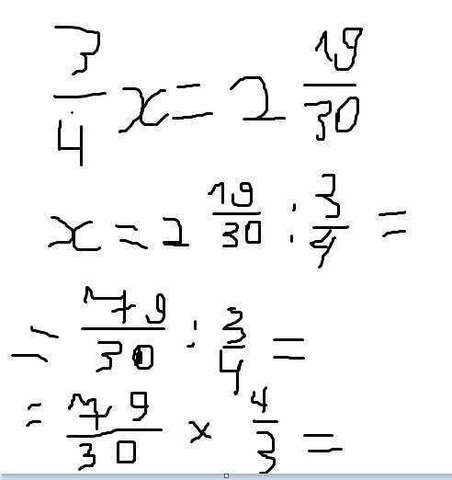 3/4 x = 2 19/30
x = 2 19/30 : 3/4 =
= 79/30 : 3/4 =
= 79/30 × 4/3 =